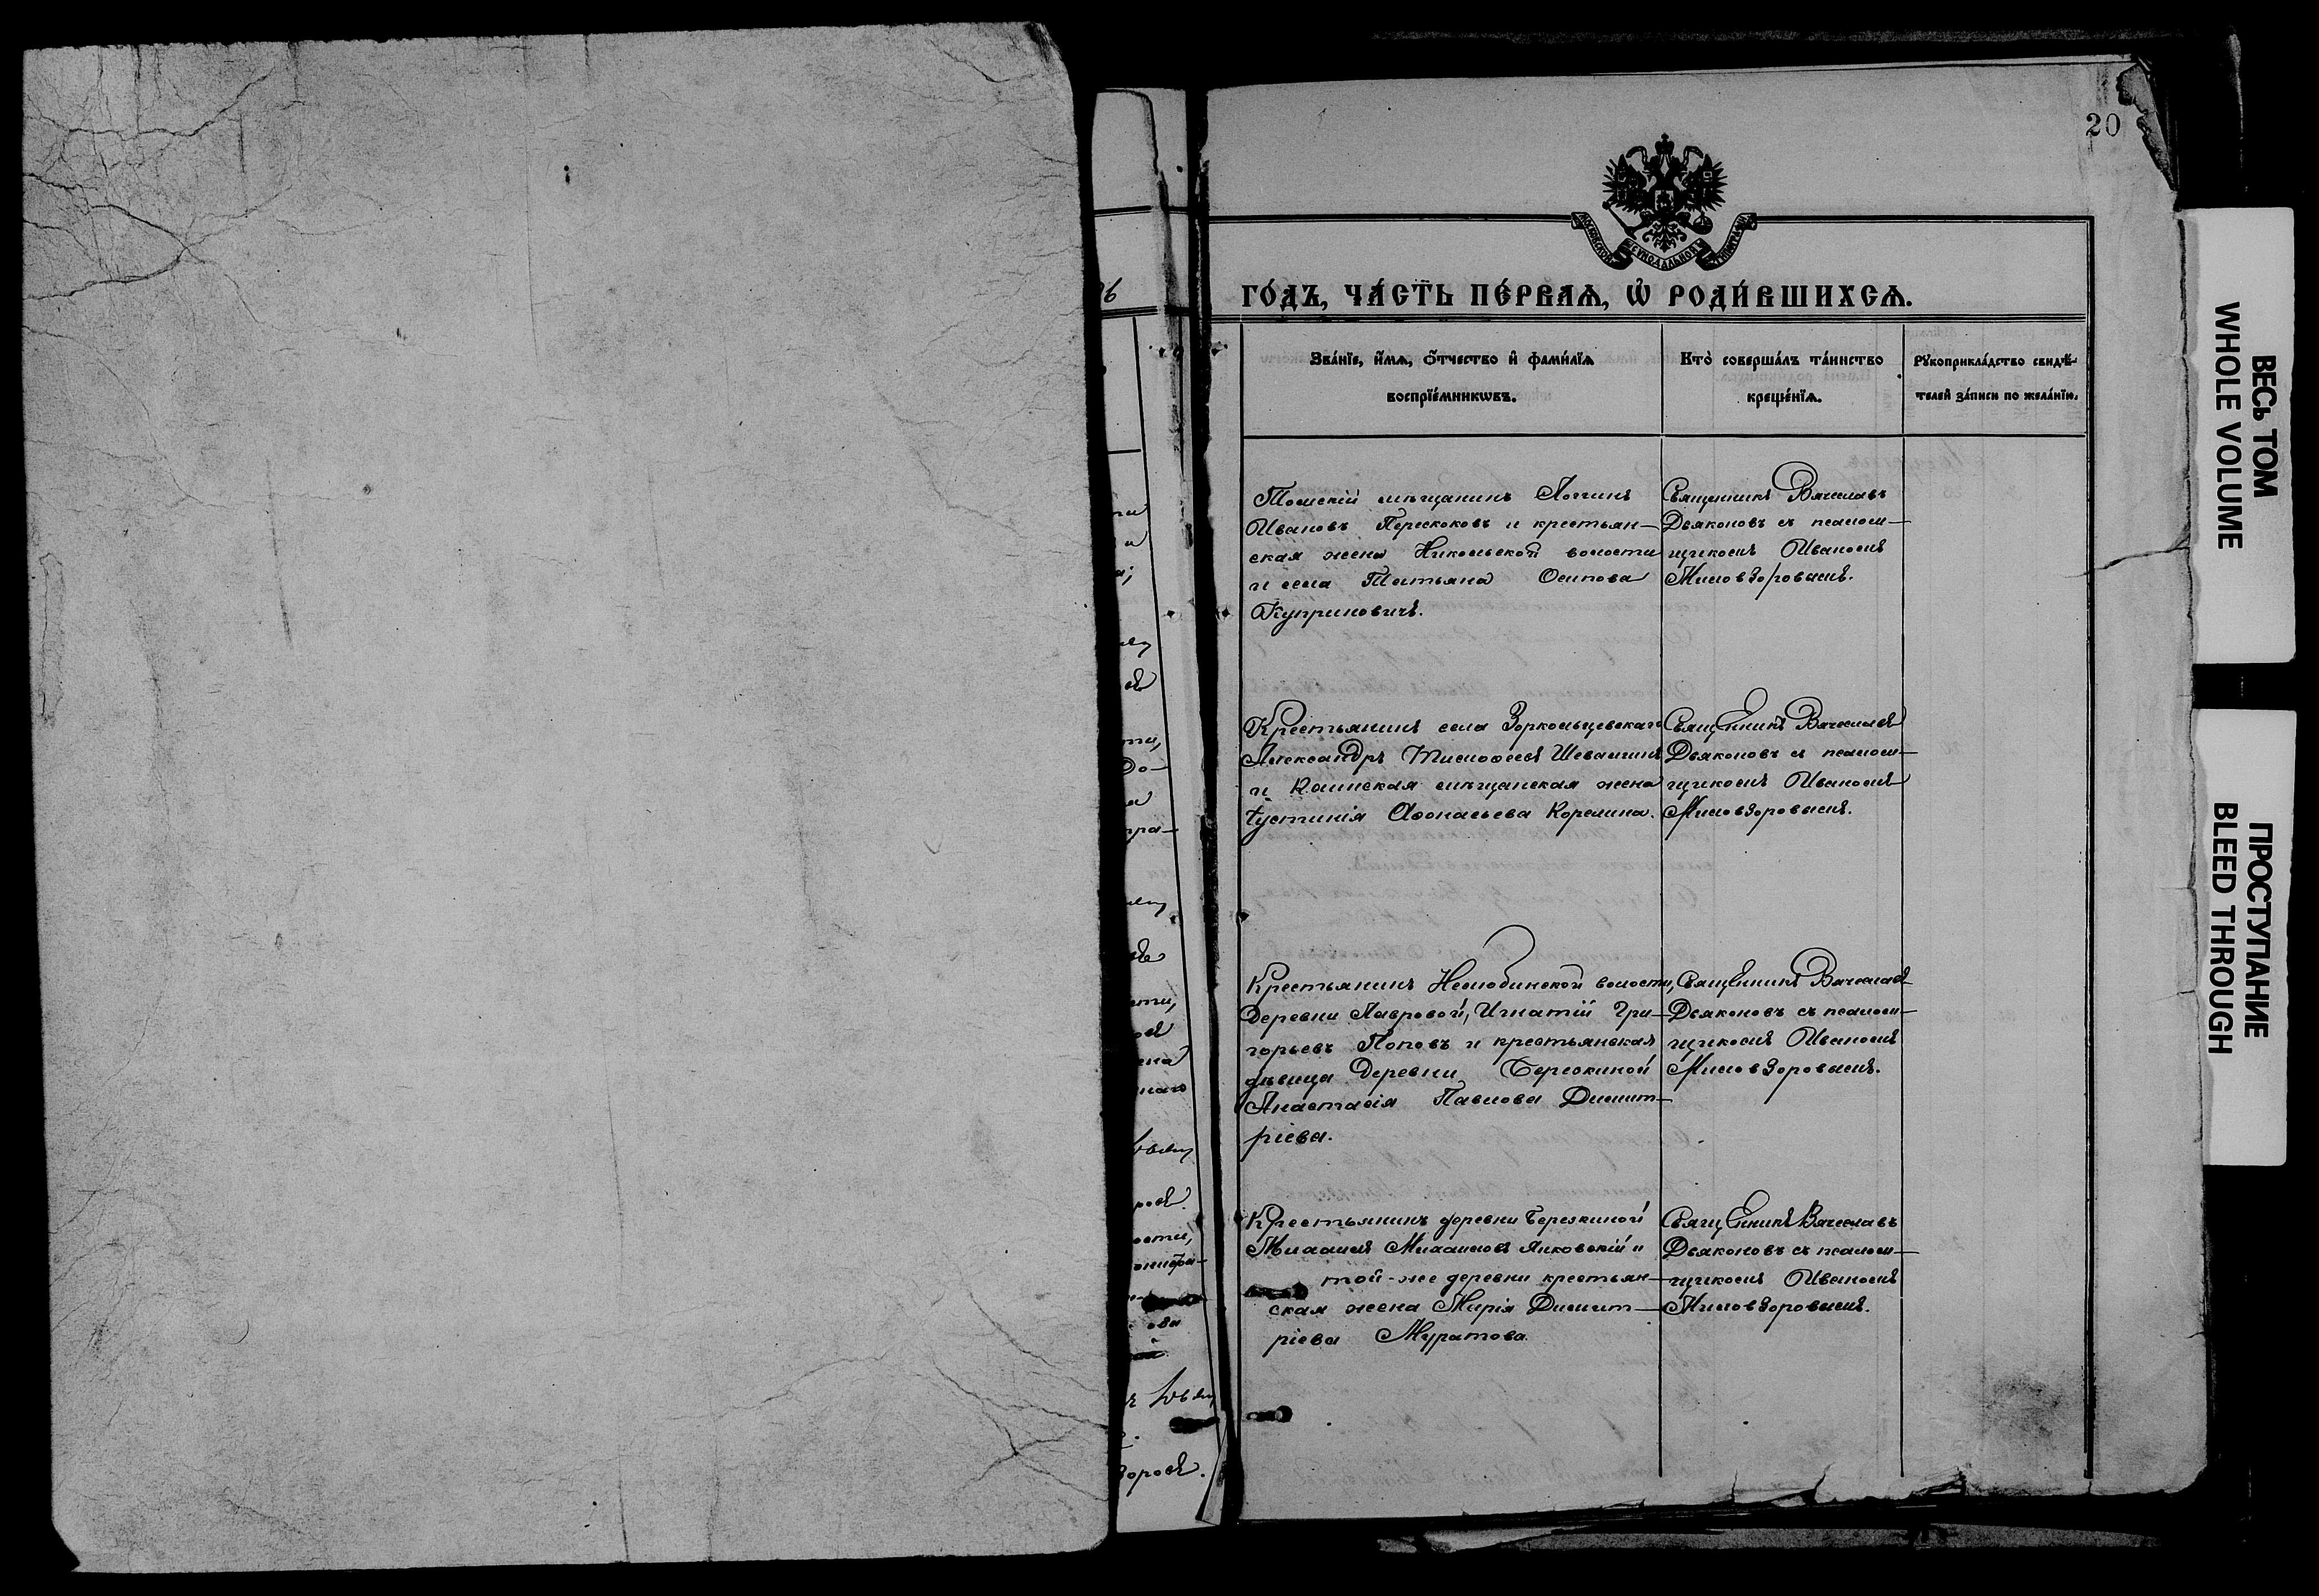 20
МОСКОВСКОЙ СѴНОДАЛЬНОЙ ТИПОГРАФІИ
ГО́ДЪ, ЧА́СТЬ ПЕ́РВАѦ, Ѡ҆ РОДИ́ВШИХСѦ.
Зва́нїе, и҆́мѧ, ѻ҆́тчество и҆ фами́лїѧ
воспрїе́мникѡвъ.
Кто̀ соверша́лъ та́инство
креще́нїѧ.
Рꙋкоприкла́дство свидѣ́-
телей за́писи по жела́нїю.
Томскій мѣщанинъ Логинъ
Ивановъ Перескоковъ и крестьян-
ская жена Никольской волости
и села Татьяна Осипова
Куприновичъ.
Священникъ Вячеславъ
Дьяконовъ съ псалом-
щикомъ Иваномъ
Миловзоровымъ.
Крестьянинъ села Зоркольцевскаго
Александръ Тимофеевъ Шевалинъ
и Каинская мѣщанская жена
Іустинія Афонасьева Корелина.
Священникъ Вячеславъ
Дьяконовъ съ псалом-
щикомъ Иваномъ
Миловзоровымъ.
Крестьянинъ Нелюбинской волости,
деревни Лавровой, Игнатій Гри-
горьевъ Поповъ и крестьянская
дѣвица деревни Березкиной
Анастасія Павлова Димит-
ріева.
Священникъ Вячеславъ
Дьяконовъ съ псалом-
щикомъ Иваномъ
Миловзоровымъ.
Крестьянинъ деревни Березкиной
Михаилъ Михаиловъ Янковскій и
той-же деревни крестьян-
ская жена Марія Димит-
ріева Муратова.
Священникъ Вячеславъ
Дьяконовъ съ псалом-
щикомъ Иваномъ
Миловзоровымъ.
ВЕСЬ ТОМ
WHOLE VOLUME
ПРОСТУПАНИЕ
BLEED THROUGH